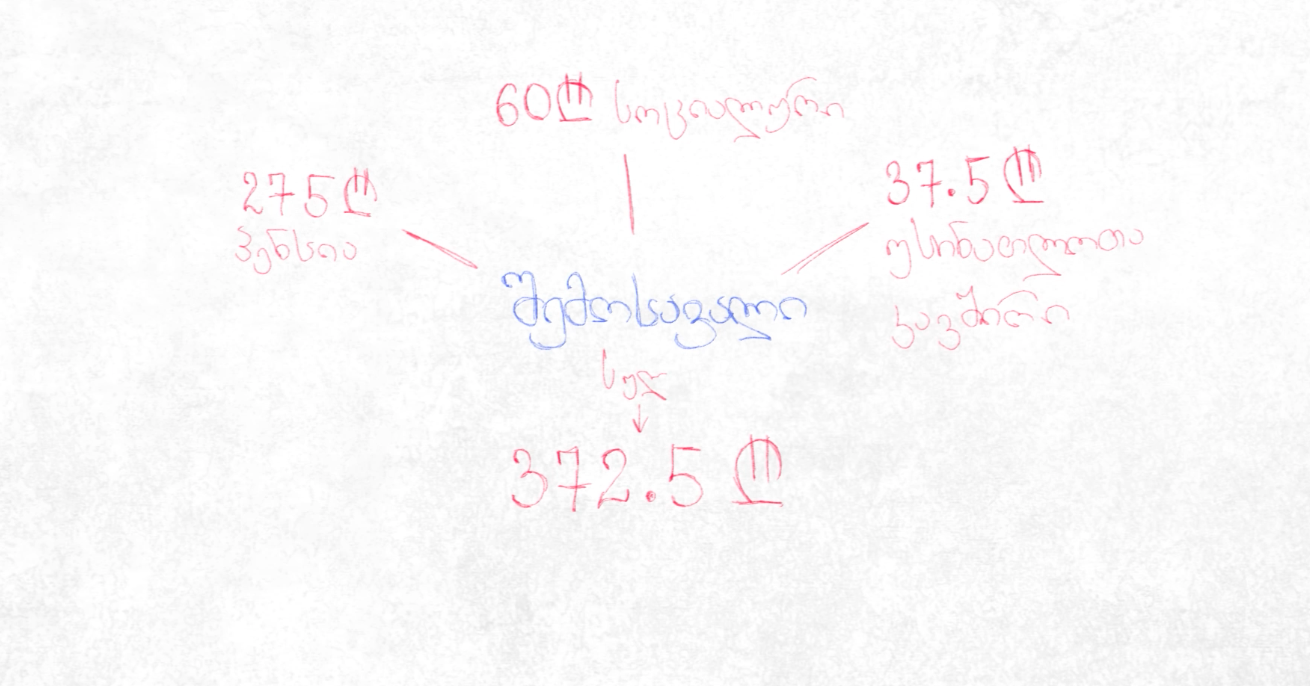 60₾ სოციალური
275₾
პენსია
37.5₾
უსინათლოთა
კავშირი
შემოსავალი
სულ
372.5₾